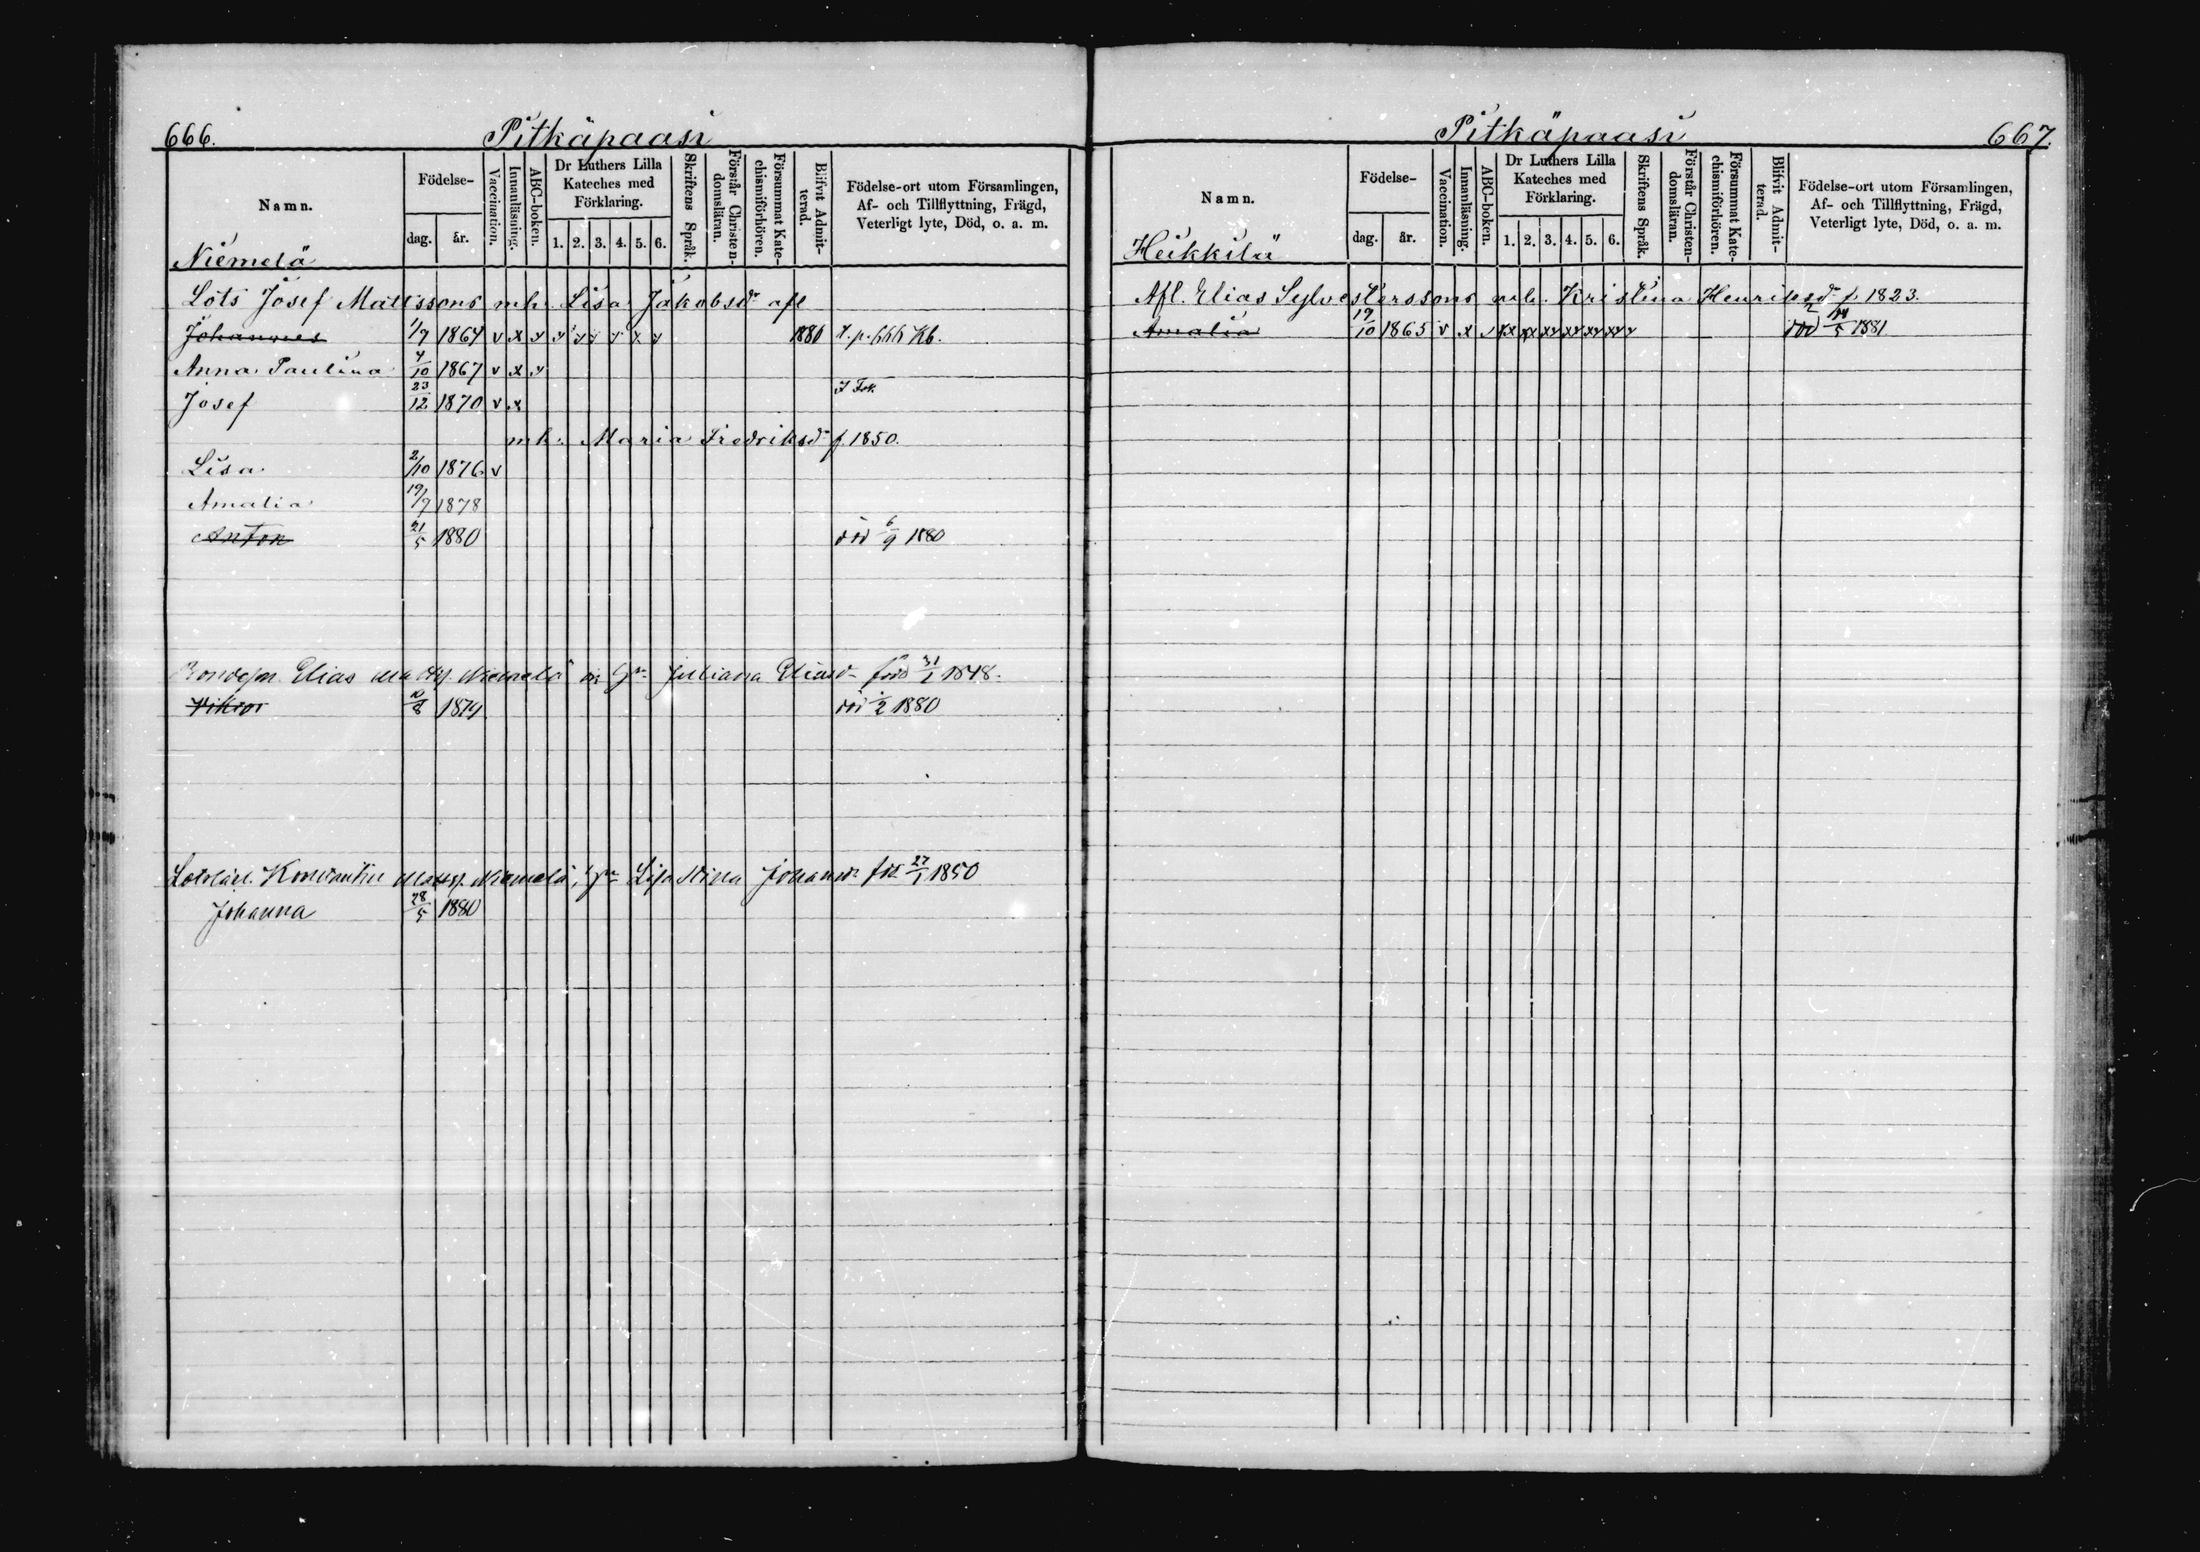 666.
Pitkäpaasi
Namn.
Födelse-
dag.
år.
Vaccination.
Innanläsning.
ABC-boken.
Dr Luthers Lilla Kateches med Förklaring.
1. 2. 3. 4. 5. 6.
Skriftens Språk.
Förstår Christendomsläran.
Försummat Katechismiförhören.
Blifvit Admitterad.
Födelse-ort utom Församlingen, Af- och Tillflyttning, Frägd, Veterligt lyte, Död, o. a. m.
Niemelä
Lots Josef Matissons mh. Lisa Jakobsdr
Johannes 1/7 1864 v x y y y y y y y 1880 Kb.
Anna Paulina 4/10 1867 v x y
Josef 23/12 1870 v x
mh. Maria Fredriksdr f. 1850.
Lisa 2/10 1876 v
Amalia 19/7 1878
Anton 21/5 1880 död 6/9 1880
Elias Niemelä Juliana Eliasdr född 31/1 1848.
Viktor 10/8 1879 död 1/2 1880
Konstantin Matts. Niemelä, Lisa Stina 27/1 1850
Johanna 28/5 1880
Pitkäpaasi
667.
Namn.
Födelse-
dag.
år.
Vaccination.
Innanläsning.
ABC-boken.
Dr Luthers Lilla Kateches med Förklaring.
1. 2. 3. 4. 5. 6.
Skriftens Språk.
Förstår Christendomsläran.
Försummat Katechismiförhören.
Blifvit Admitterad.
Födelse-ort utom Församlingen, Af- och Tillflyttning, Frägd, Veterligt lyte, Död, o. a. m.
Heikkilä
Afl. Elias Sylvesterssons mh. Kristina Henriksdr f. 1823.
Amalia 19/10 1865 v x död 14/5 1881